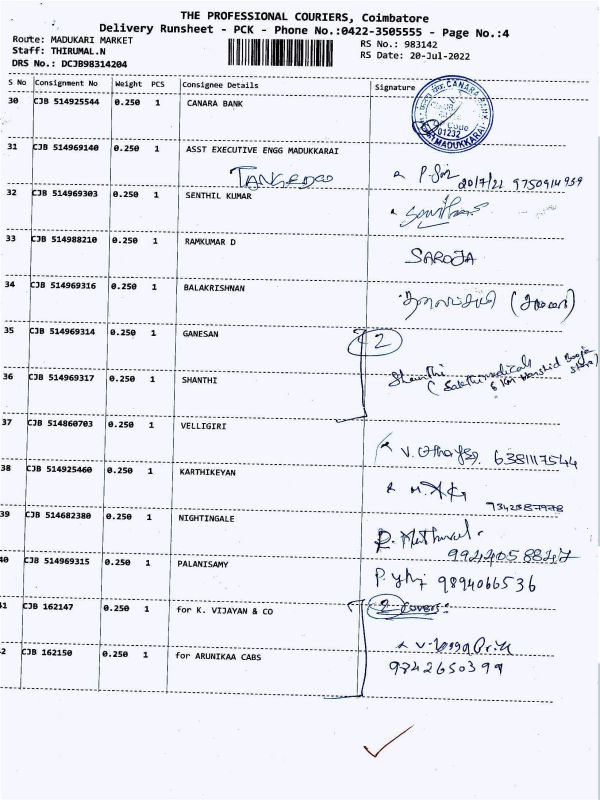 THE PROFESSIONAL COURIERS, Coimbatore
Delivery Runsheet - PCK - Phone No.:0422-3505555 - Page No.:4
Route: MADUKARI MARKET
Staff: THIRUMAL.N
DRS No.: DCJB98314204
RS No.: 983142
RS Date: 20-Jul-2022
S No Consignment No Weight PCS Consignee Details Signature
30 CJB 514925544 0.250 1 CANARA BANK
CANARA BANK
Code
01232
MADUKKARAI
31 CJB 514969140 0.250 1 ASST EXECUTIVE ENGG MADUKKARAI
9750914939
32 CJB 514969303 0.250 1 SENTHIL KUMAR
33 CJB 514988210 0.250 1 RAMKUMAR D
SAROJA
34 CJB 514969316 0.250 1 BALAKRISHNAN
35 CJB 514969314 0.250 1 GANESAN
2
36 CJB 514969317 0.250 1 SHANTHI
Shanthi
37 CJB 514860703 0.250 1 VELLIGIRI
6381117544
38 CJB 514925460 0.250 1 KARTHIKEYAN
39 CJB 514682380 0.250 1 NIGHTINGALE
9944058847
40 CJB 514969315 0.250 1 PALANISAMY
9894066536
41 CJB 162147 0.250 1 for K. VIJAYAN & CO
2 Covers:
42 CJB 162150 0.250 1 for ARUNIKAA CABS
9842650399